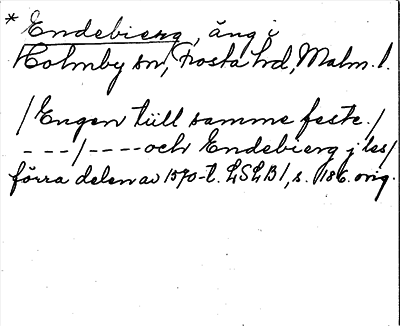 * Endebierg, äng i
Holmby sn, Frosta hd, Malm. l.
/Engen tüll samme feste./
- - -/- - - - och Endebierg j les/
förra delen av 1570-t. LSLB 1, s. 186. orig.